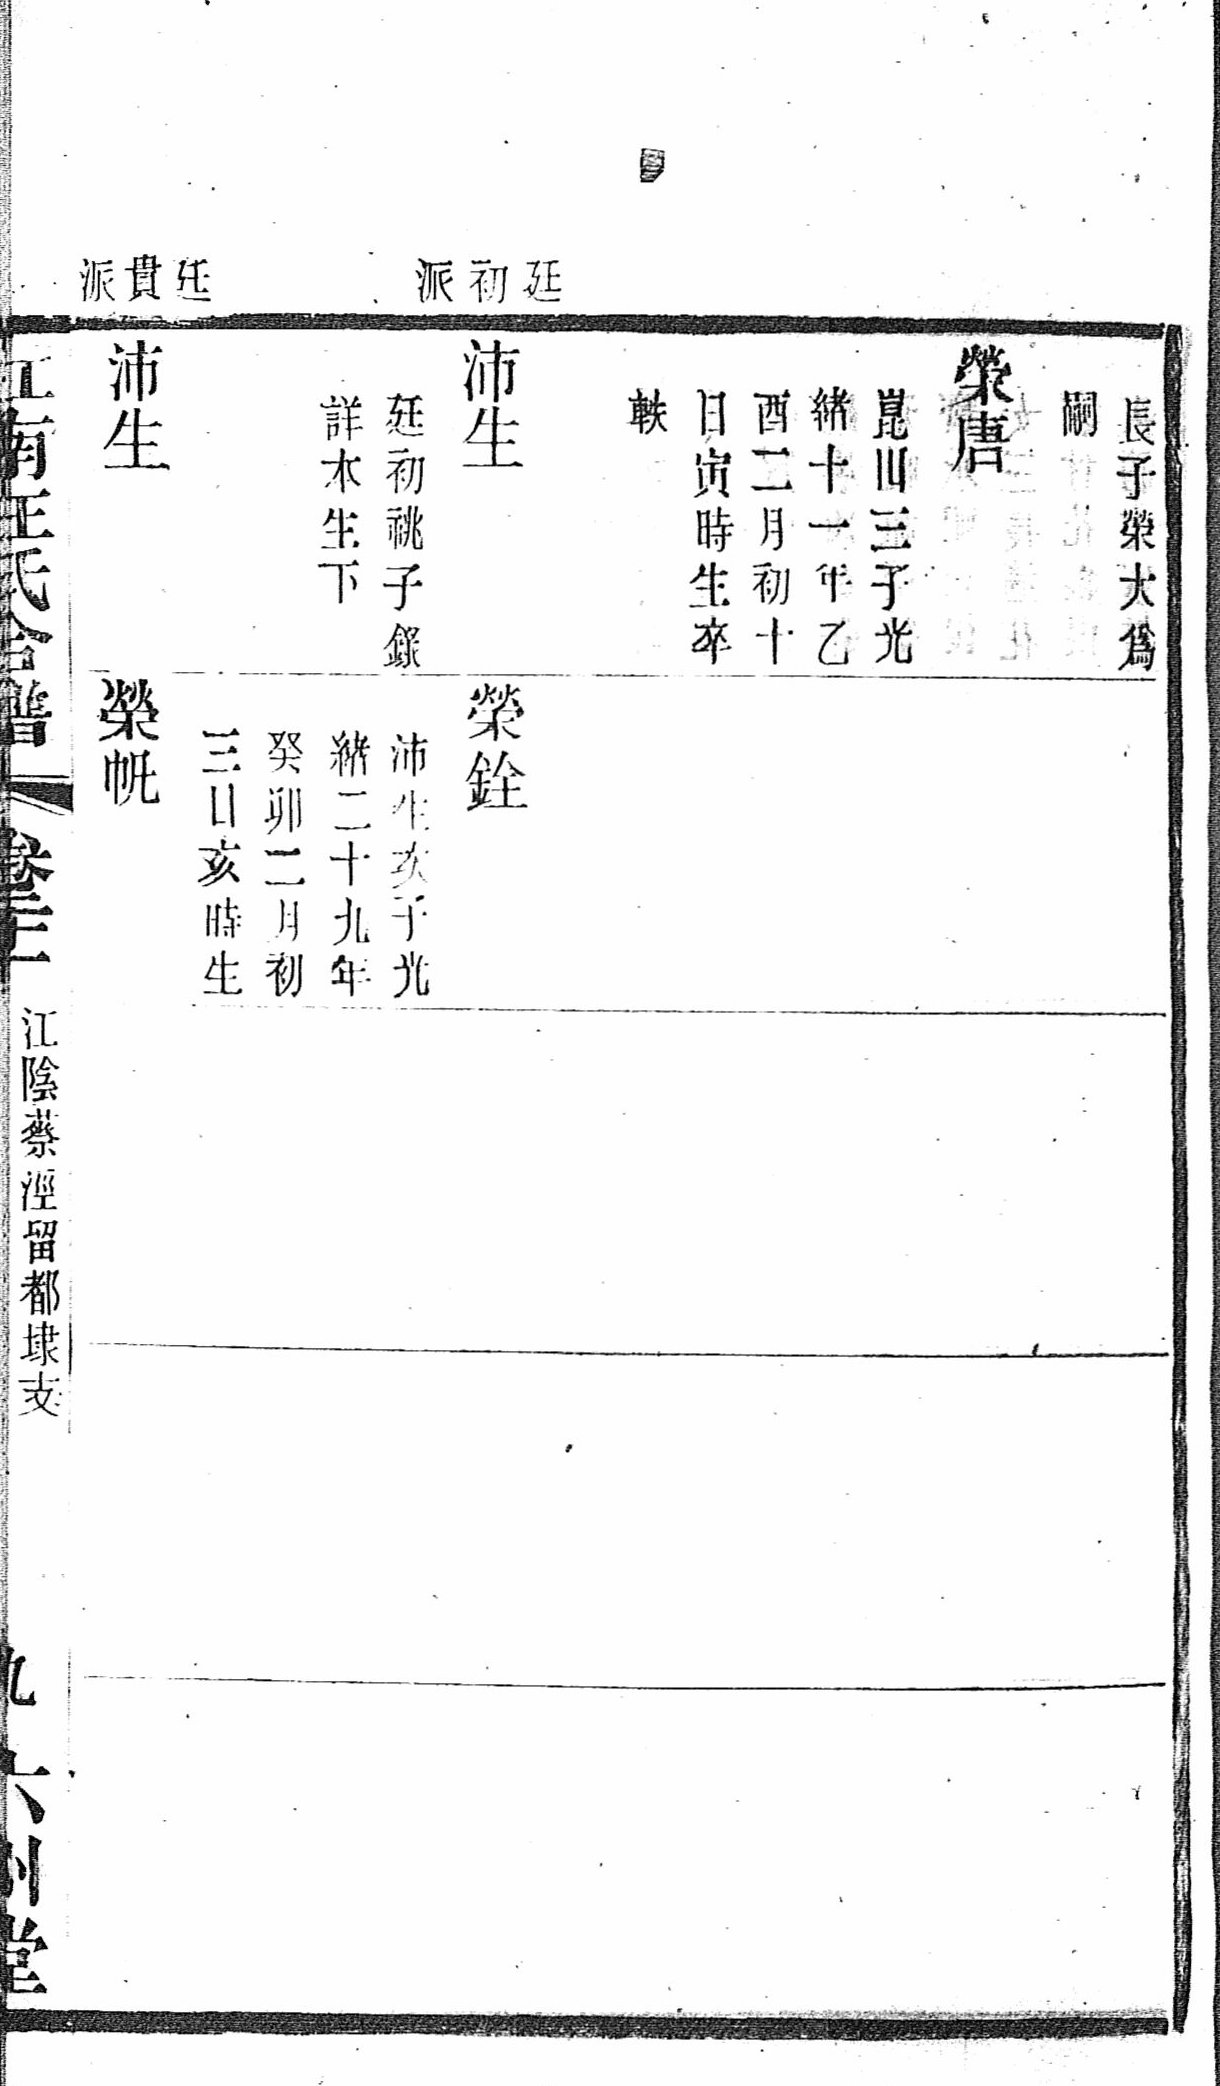 廷初派
廷貴派
長子榮大爲
嗣
榮唐
崑山三子光
緒十一年乙
酉二月初十
日寅時生卒
軼
沛生
廷初祧子錄
詳本生下
沛生
榮銓
沛生次子光
緒二十九年
癸卯二月初
三日亥時生
榮帆
江南汪氏合譜
卷二
江陰蔡涇留都埭支
九
六州堂